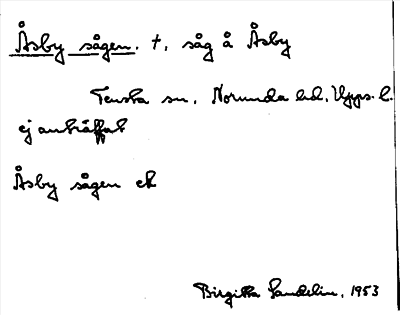 Åsby sågen. †, såg å Åsby
Tensta sn. Norunda hd. Upps. l.
ej anträffat
Åsby sågen ek
Birgitta Sandelin. 1953